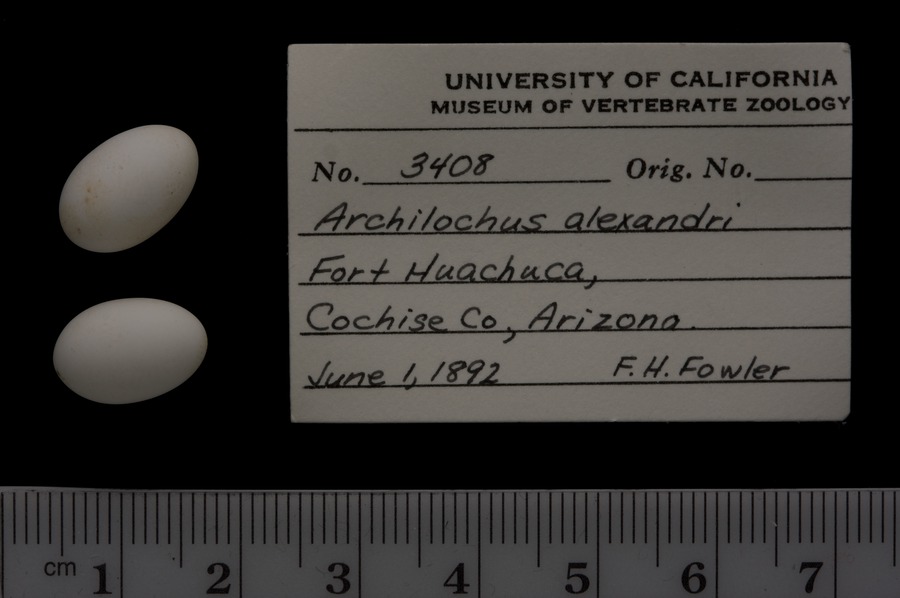 UNIVERSITY OF CALIFORNIA
MUSEUM OF VERTEBRATE ZOOLOGY
No. 3408 Orig. No.
Archilochus alexandri
Fort Huachuca,
Cochise Co, Arizona.
June 1, 1892 F.H. Fowler
cm 1 2 3 4 5 6 7